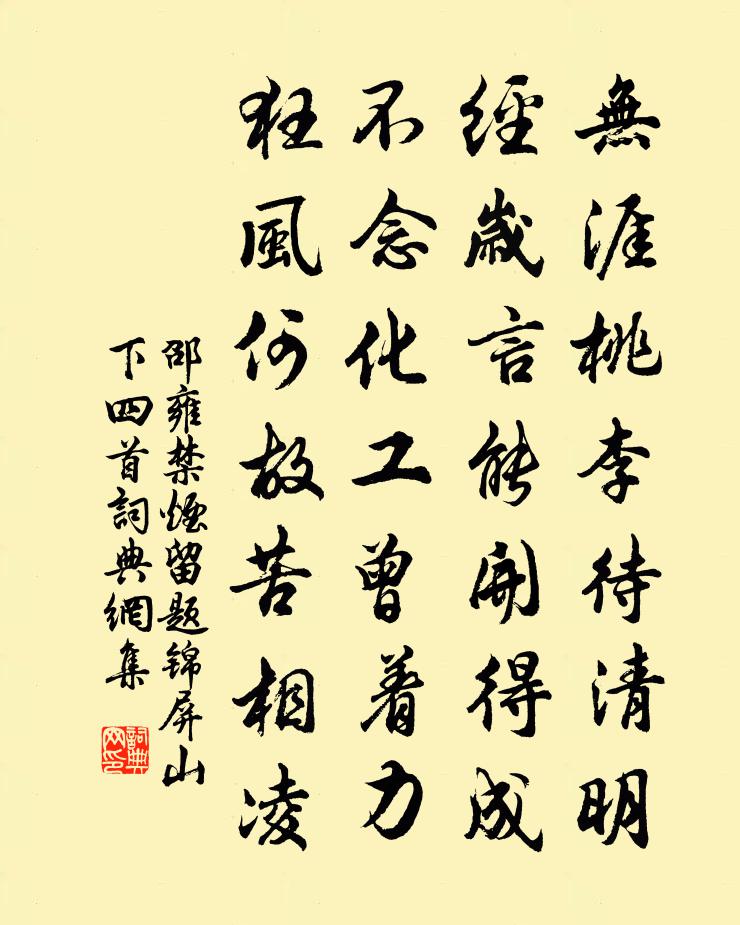 無涯桃李待清明
經歲言能開得成
不念化工曾着力
狂風何故苦相凌
邵雍禁煙留题錦屏山
下四首詞典網集
詞典
网印